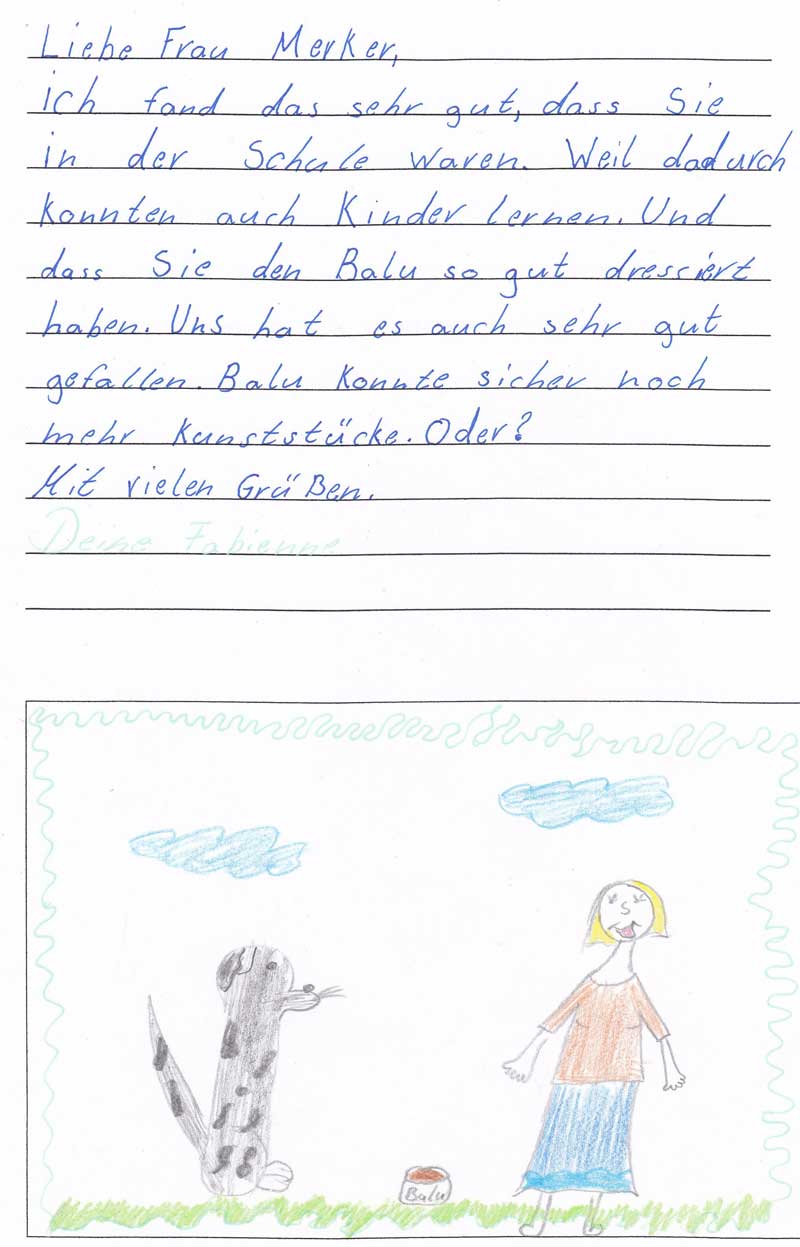 Liebe Frau Merker,
ich fand das sehr gut, dass Sie
in der Schule waren. Weil dadurch
konnten auch Kinder lernen. Und
dass Sie den Balu so gut dressiert
haben. Uns hat es auch sehr gut
gefallen. Balu konnte sicher noch
mehr Kunststücke. Oder?
Mit vielen Grüßen.
Deine Fabienne
Balu